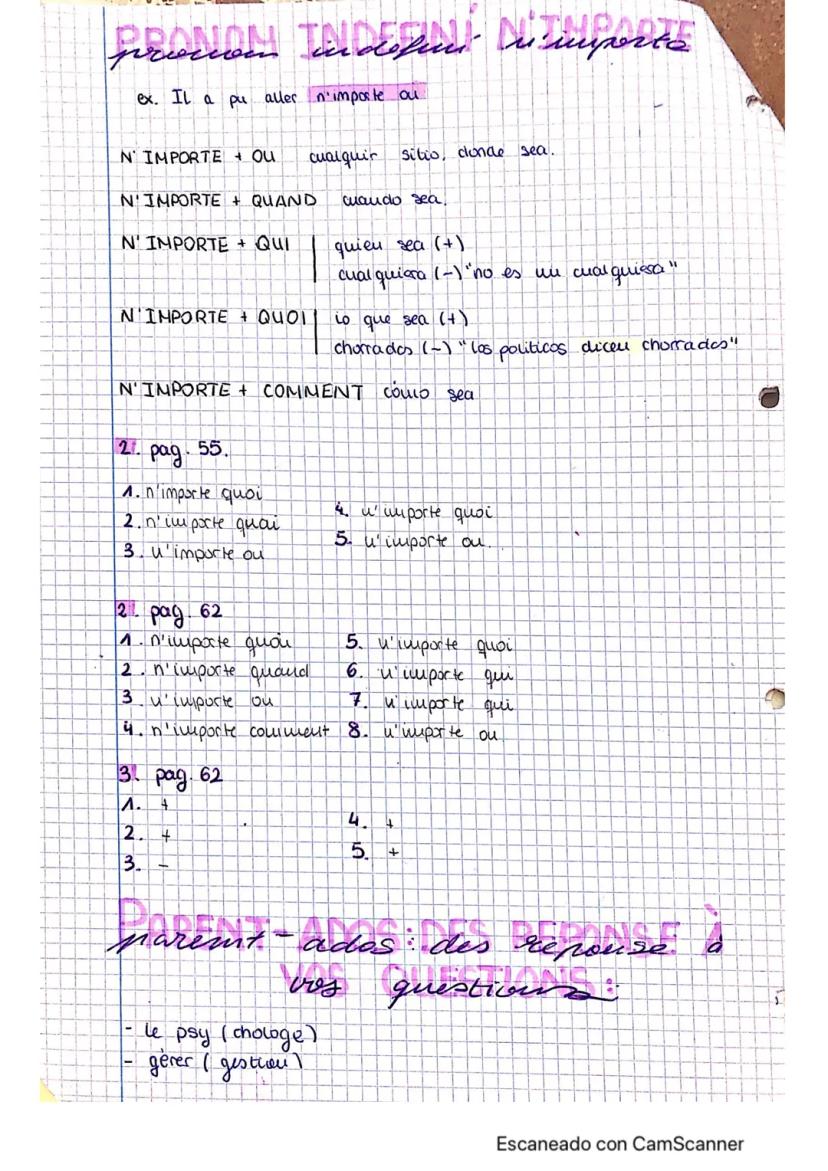 PRONOM INDEFINI N'IMPORTE
pronom indefini n'importe
ex. Il a pu aller n'importe ou
N'IMPORTE + OU cualquir sitio, donde sea.
N'IMPORTE + QUAND cuando sea.
N'IMPORTE + QUI quien sea (+)
cualquiera (-) "no es un cualquiera"
N'IMPORTE + QUOI lo que sea (+)
chorradas (-) "los politicos dicen chorradas"
N'IMPORTE + COMMENT cómo sea
2. pag. 55.
1. n'importe quoi
2. n'importe quoi
3. n'importe ou
4. n'importe quoi
5. n'importe ou.
2. pag. 62
1. n'importe quoi
2. n'importe quand
3. n'importe ou
4. n'importe comment
5. n'importe quoi
6. n'importe qui
7. n'importe qui
8. n'importe ou
3. pag. 62
1. +
2. +
3. -
4. +
5. +
PARENT-ADOS: DES REPONSE À
parent-ados: des reponse à
VOS QUESTIONS:
vos questions:
- le psy (chologe)
- gérer (gestion)
Escaneado con CamScanner